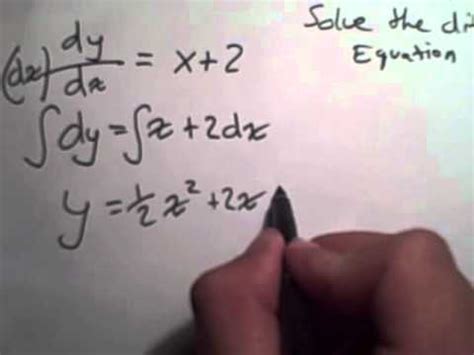 Solve the di
Equation
(dx) dy/dx = x+2
∫dy = ∫x + 2dx
y = ½x² + 2x